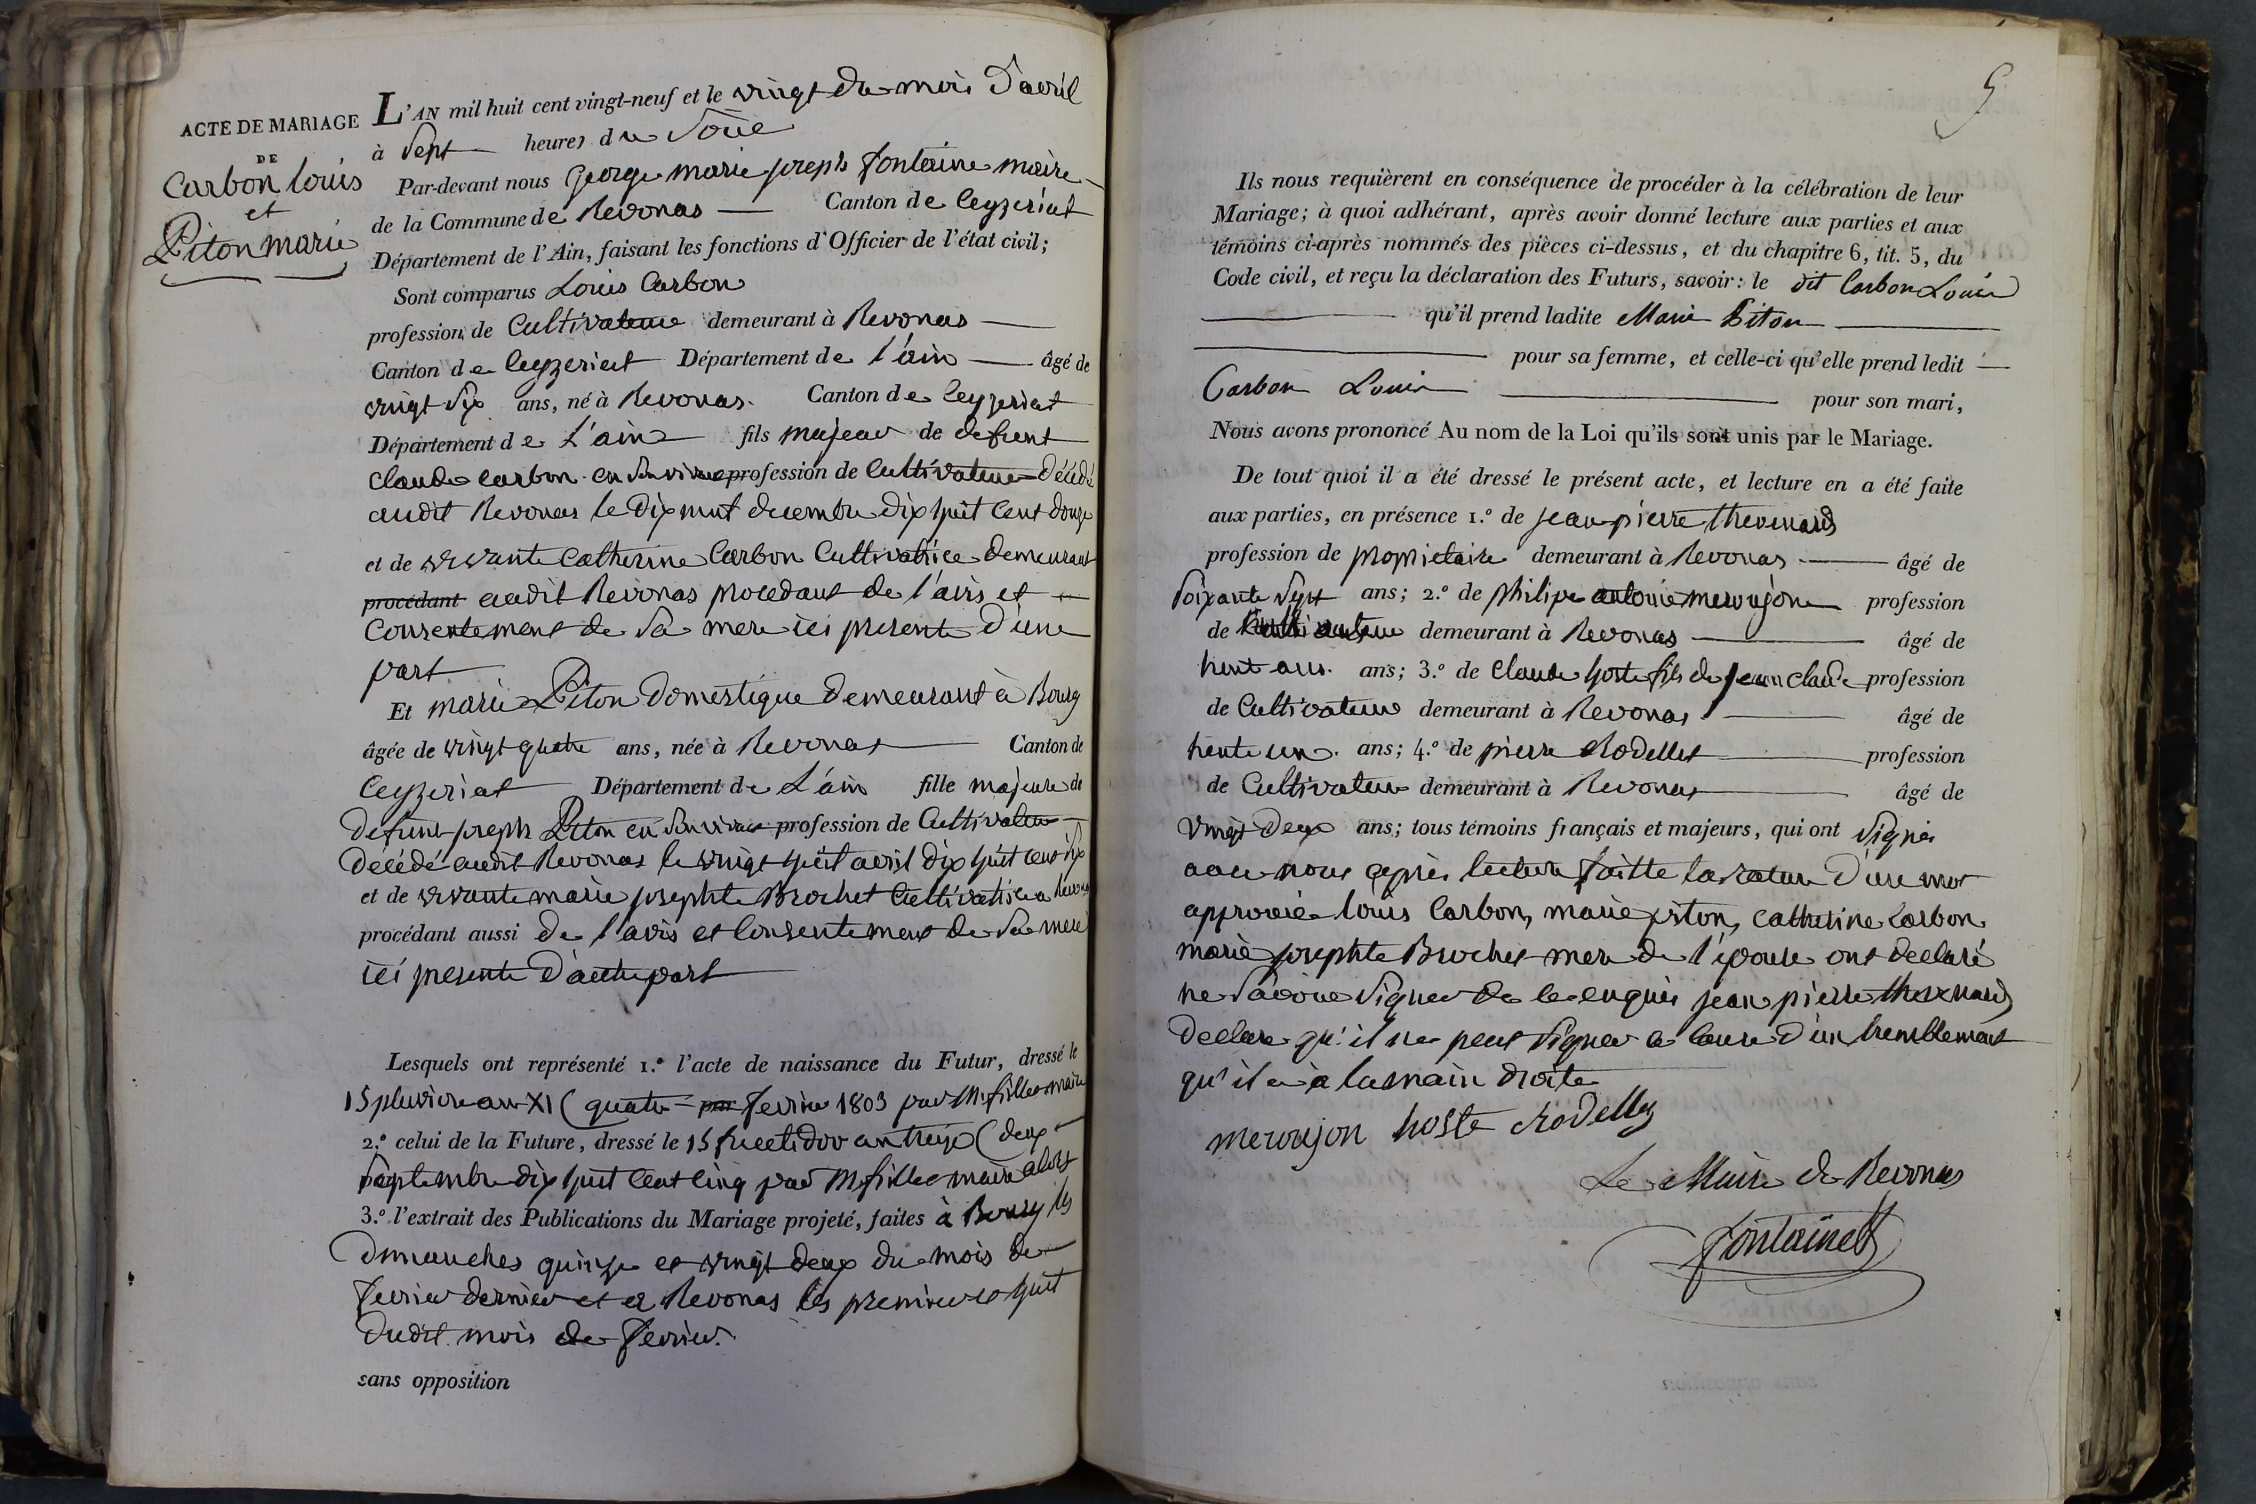 ACTE DE MARIAGE
DE
Carbon louis
et
Piton marie
L'AN mil huit cent vingt-neuf et le vingt du mois d'avril
à Sept heures du Soire
Par-devant nous George marie joseph fontaine maire
de la Commune de Revonas Canton de Ceyzeriat
Département de l'Ain, faisant les fonctions d'Officier de l'état civil;
Sont comparus Louis Carbon
profession de Cultivateur demeurant à Revonas
Canton de Ceyzeriat Département de l'ain âgé de
vingt six ans, né à Revonas. Canton de Ceyzeriat
Département de L'ain fils majeur de defunt
Claude Carbon en Son vivant profession de Cultivateur décédé
audit Revonas le dix neuf decembre dix huit Cent douze
et de vivante Catherine Carbon Cultivatrice demeurant
procédant audit Revonas procedant de l'avis et
Consentement de Sa mere ici presente d'une
part
Et marie Piton domestique demeurant à Bourg
âgée de vingt quatre ans, née à Revonas Canton de
Ceyzeriat Département de L'ain fille majeure de
defunt joseph Piton en Son vivant profession de Cultivateur
décédé audit Revonas le vingt huit avril dix huit cent dix
et de vivante marie josephte Brochet Cultivatrice a Revonas
procédant aussi de l'avis et Consentement de Sa mere
ici presente d'autre part
Lesquels ont représenté 1.º l'acte de naissance du Futur, dressé le
15 pluviose an XI (quatre par fevrier 1803 par M. fillet maire
2.º celui de la Future, dressé le 15 fructidor an treize (deux
Septembre dix huit Cent cinq par M. fillet maire alors
3.º l'extrait des Publications du Mariage projeté, faites à Bourg les
dimanches quinze et vingt deux du mois de
fevrier dernier et a Revonas les premier et huit
dudit mois de fevrier.
sans opposition
5
Ils nous requièrent en conséquence de procéder à la célébration de leur
Mariage; à quoi adhérant, après avoir donné lecture aux parties et aux
témoins ci-après nommés des pièces ci-dessus, et du chapitre 6, tit. 5, du
Code civil, et reçu la déclaration des Futurs, savoir: le dit Carbon Louis
qu'il prend ladite Marie Piton
pour sa femme, et celle-ci qu'elle prend ledit
Carbon Louis pour son mari,
Nous avons prononcé Au nom de la Loi qu'ils sont unis par le Mariage.
De tout quoi il a été dressé le présent acte, et lecture en a été faite
aux parties, en présence 1.º de jean pierre thevenard
profession de proprietaire demeurant à Revonas âgé de
Soixante Sept ans; 2.º de philipe antoine meroujon profession
de Cultivateur demeurant à Revonas âgé de
trent ans. ans; 3.º de Claude hoste fils de jean claude profession
de Cultivateur demeurant à Revonas âgé de
trente un ans; 4.º de pierre Rodellet profession
de Cultivateur demeurant à Revonas âgé de
vingt deux ans; tous témoins français et majeurs, qui ont Signés
avec nous après lecture faitte la rature d'une mot
approvée louis Carbon, marie piton, Catherine Carbon
marie josephte Brochet mere de l'épouse ont declaré
ne Savoir Signer de ce enquis jean pierre thevenard
declare qu'il ne peut Signer a Cause d'un tremblement
qu'il a à la main droite
meroujon hoste Rodellet
Le Maire de Revonas
fontaine